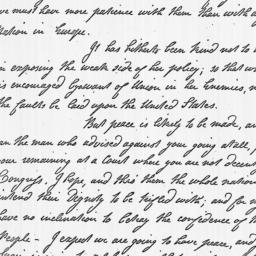 we must have more patience with them than with a
Nation in Europe.
It has hitherto been kind not to
in exposing the weak side of her policy; so that w
is encouraged Govern.t of Union in her Enemies,
the faults be laid upon the United States.
But peace is likely to be made, a
on the man who advised against your going at all,
your remaining at a Court where you are not decent
Congress, I hope, and thro' them the whole nation
intend their Dignity to be trifled with; and for
have no inclination to betray the confidence of
People — I expect we are going to have peace, and